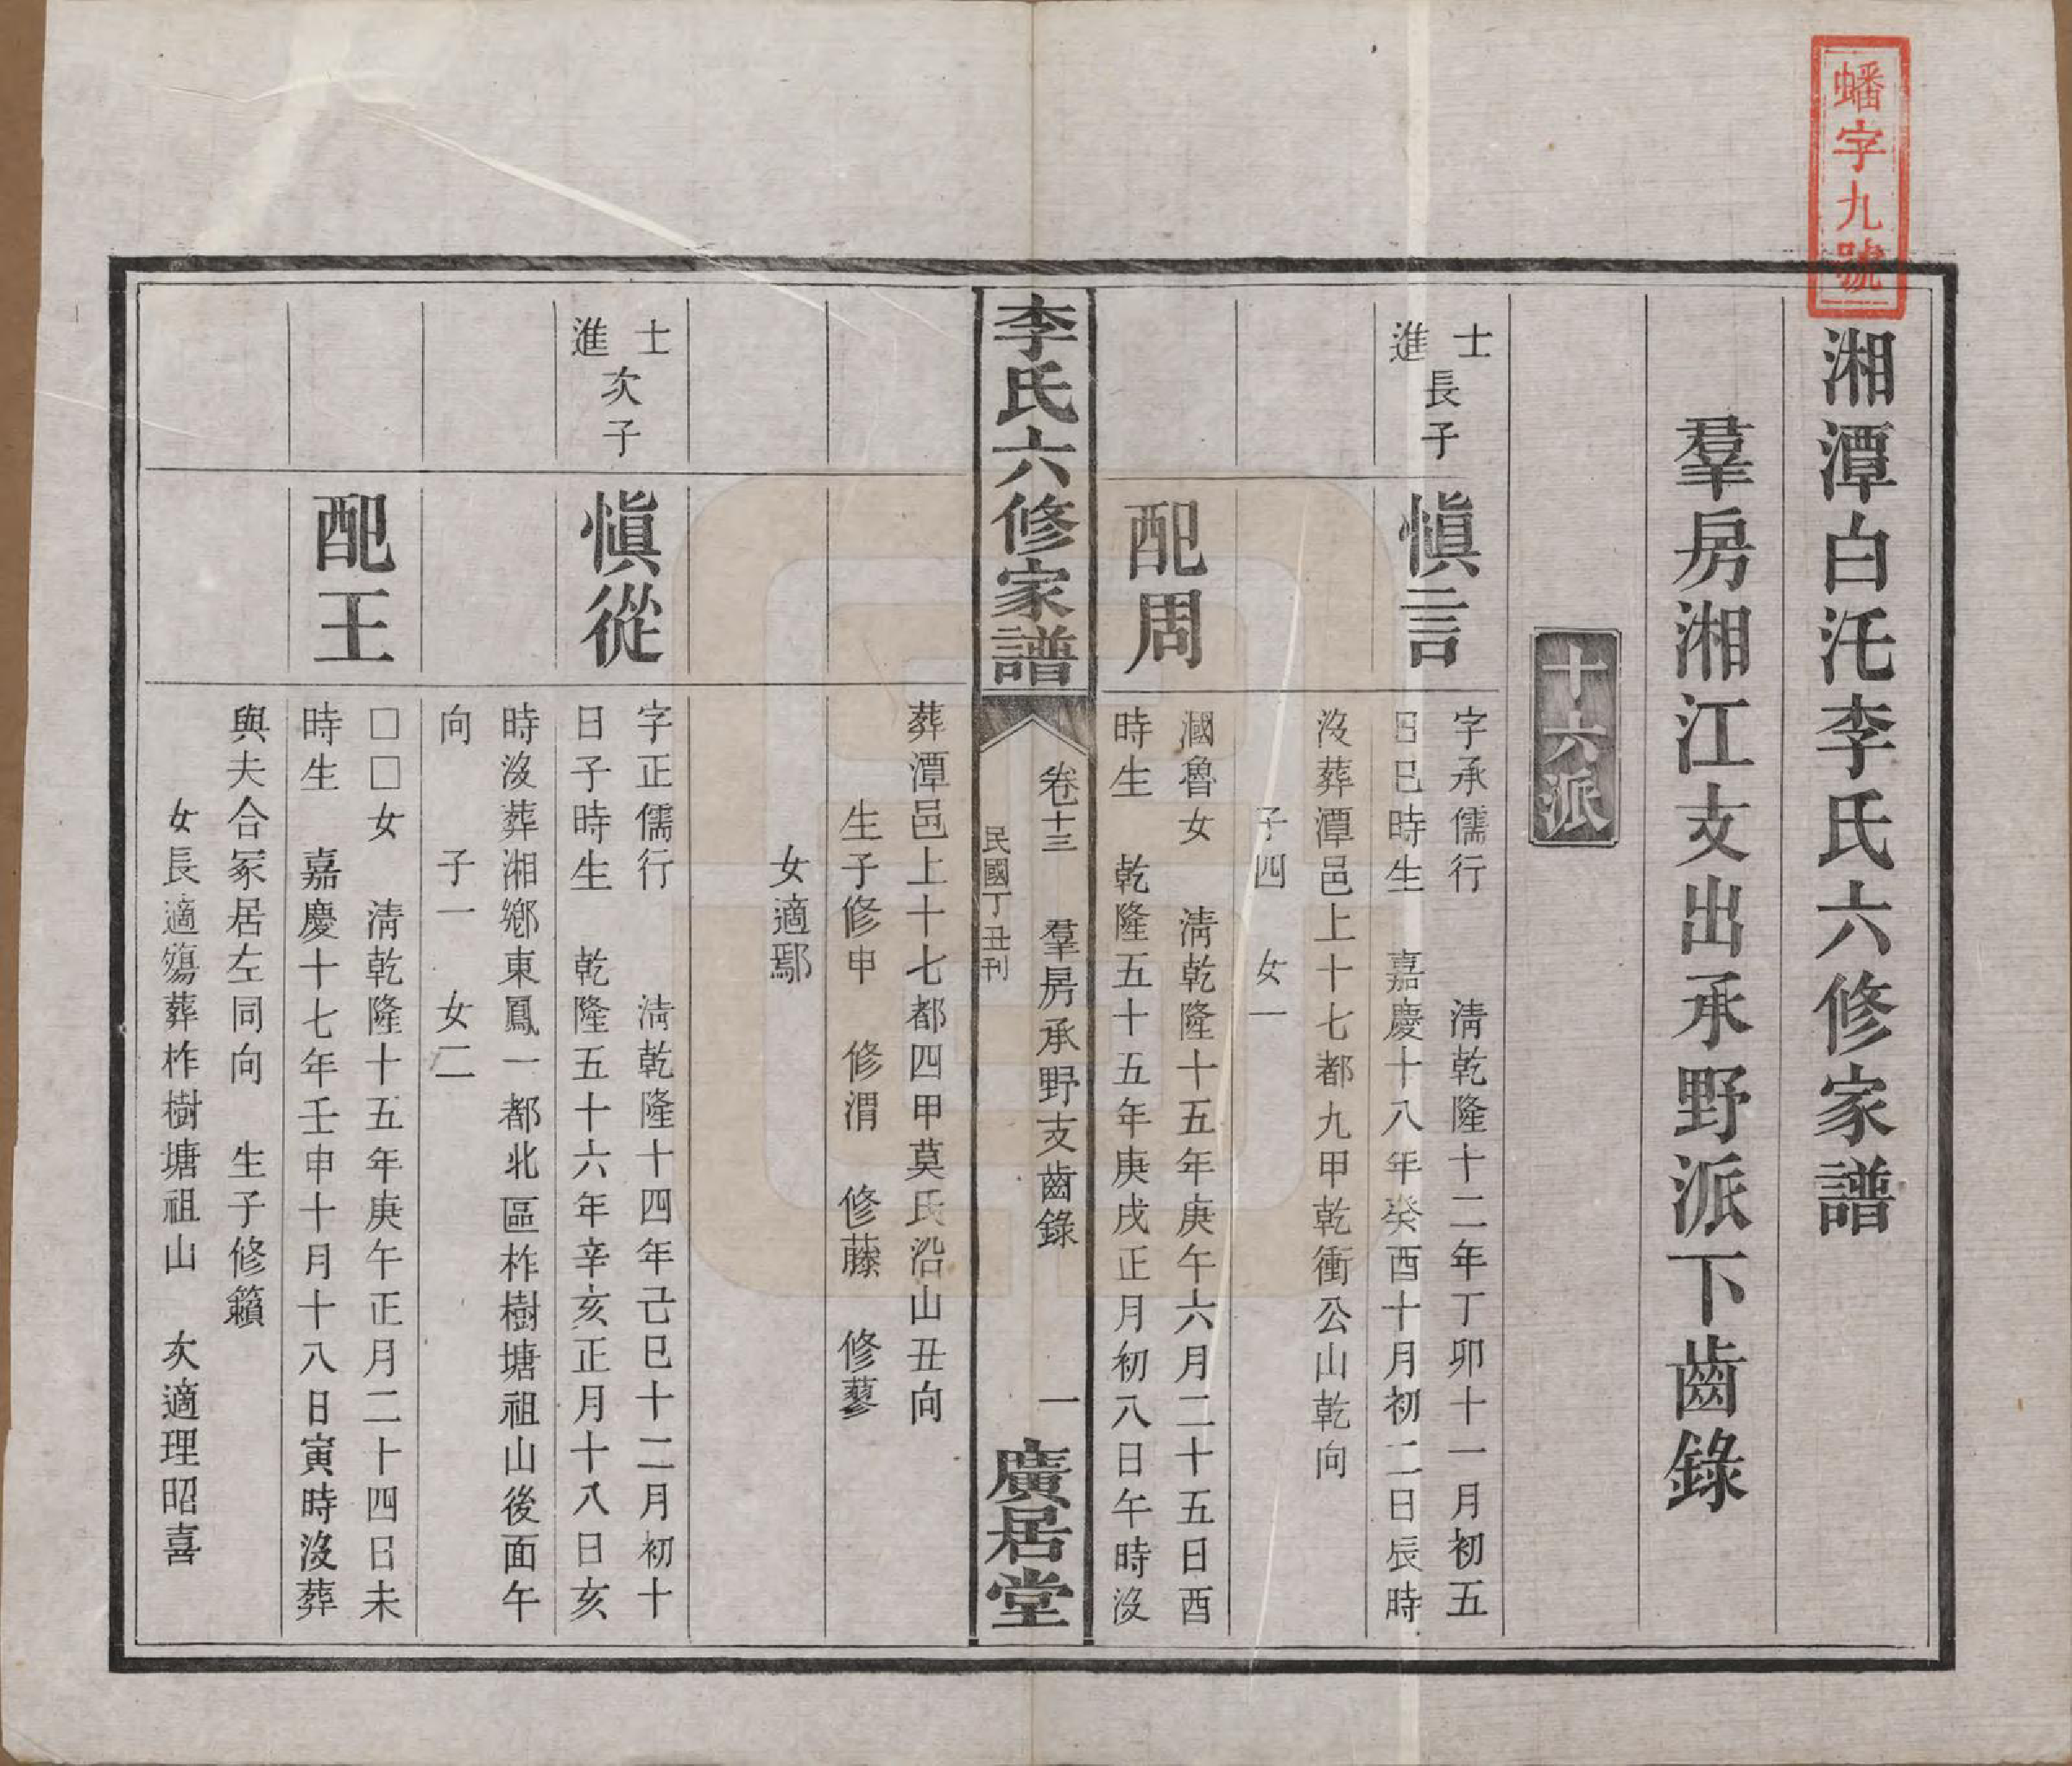 蟠字九號
湘潭白汑李氏六修家譜
羣房湘江支出承野派下齒錄
十六派
士進長子
慎言
字承儒行　　清乾隆十二年丁卯十一月初五
日巳時生　嘉慶十八年癸酉十月初二日辰時
沒葬潭邑上十七都九甲乾衝公山乾向
子四　女一
配周
國魯女　清乾隆十五年庚午六月二十五日酉
時生　乾隆五十五年庚戌正月初八日午時沒
李氏六修家譜
卷十三　羣房承野支齒錄　一
民國丁丑刊
廣居堂
葬潭邑上十七都四甲莫氏沿山丑向
生子修申　修渭　修藤　修蓼
女適鄢
士進次子
慎從
字正儒行　　清乾隆十四年己巳十二月初十
日子時生　乾隆五十六年辛亥正月十八日亥
時沒葬湘鄉東鳳一都北區柞樹塘祖山後面午
向　　子一　女二
配王
□□女　清乾隆十五年庚午正月二十四日未
時生　嘉慶十七年壬申十月十八日寅時沒葬
與夫合冢居左同向　生子修籟
女長適殤葬柞樹塘祖山　次適理昭喜